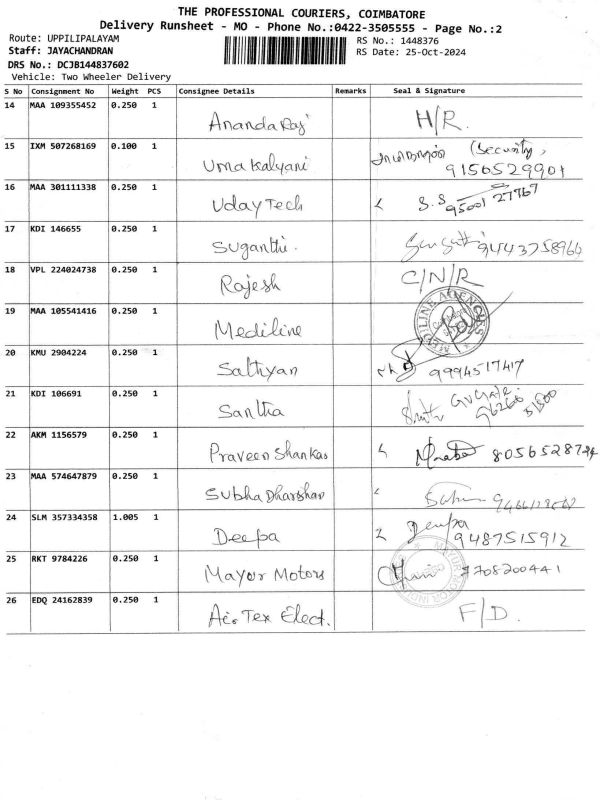 THE PROFESSIONAL COURIERS, COIMBATORE
Delivery Runsheet - MO - Phone No.:0422-3505555 - Page No.:2
Route: UPPILIPALAYAM RS No.: 1448376
Staff: JAYACHANDRAN RS Date: 25-Oct-2024
DRS No.: DCJB144837602
Vehicle: Two Wheeler Delivery
S No Consignment No Weight PCS Consignee Details Remarks Seal & Signature
14 MAA 109355452 0.250 1 Ananda Raj H/R.
15 IXM 507268169 0.100 1 Uma Kalyani (Security, 9150529901
16 MAA 301111338 0.250 1 Uday Tech S.S 95001 27767
17 KDI 146655 0.250 1 Suganthi. 9443758966
18 VPL 224024738 0.250 1 Rajesh C/N/R
19 MAA 105541416 0.250 1 Mediline MEDILINE AGENCIES
20 KMU 2904224 0.250 1 Sathyan 9994517417
21 KDI 106691 0.250 1 Santha
22 AKM 1156579 0.250 1 Praveen Shankar
23 MAA 574647879 0.250 1 Subha Dharshan
24 SLM 357334358 1.005 1 Deepa Deepa 9487515912
25 RKT 9784226 0.250 1 Mayur Motors 7708200441
26 EDQ 24162839 0.250 1 Air Tex Elect. F/D.